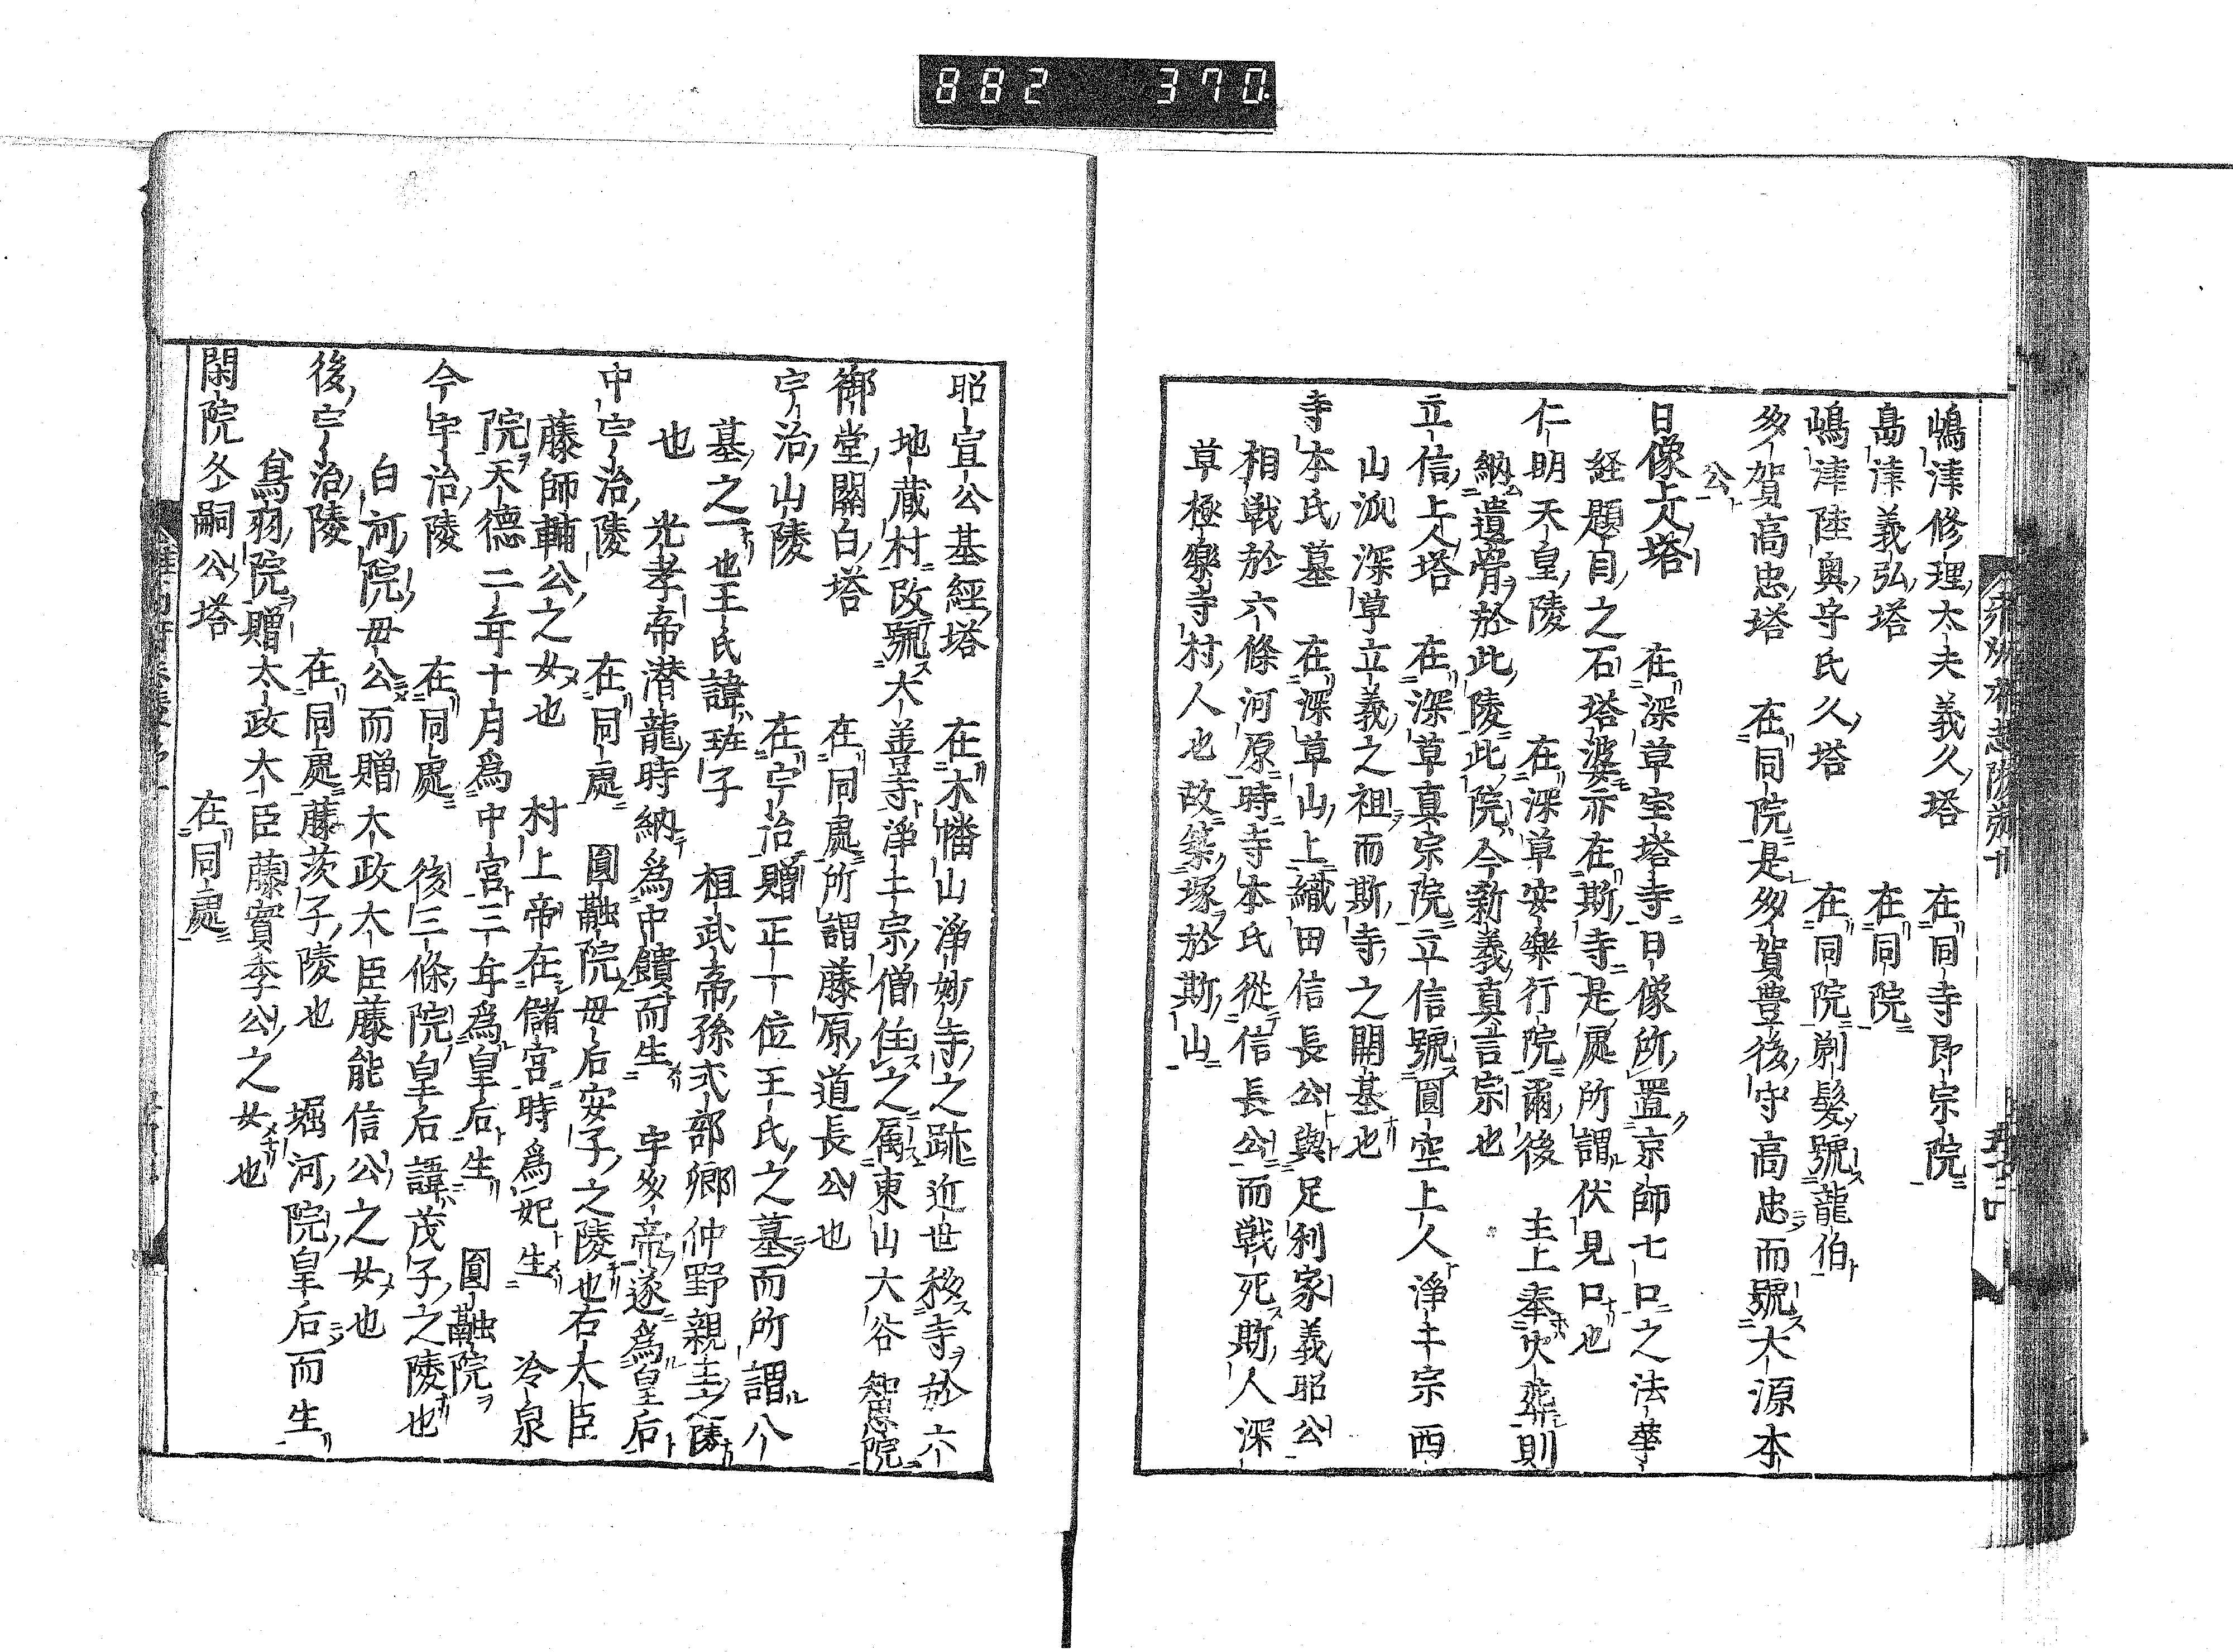 882 370
嶋津修理太夫義久塔 在同寺即宗院
島津義弘塔 在同院
嶋津陸奥守氏久塔 在同院剃髮號龍伯
多賀高忠塔 在同院是多賀豊後守高忠而號大源本
公
日像上人塔 在深草宝塔寺日像所置京師七口之法華
経題目之石塔婆亦在斯寺是處所謂伏見口也
仁明天皇陵 在深草安樂行院爾後 主上奉火葬則
納遺骨於此陵此院今新義真言宗也
立信上人塔 在深草真宗院立信號圓空上人淨土宗西
山派深草立義之祖而斯寺之開基也
寺本氏墓 在深草山上織田信長公與足利家義昭公
相戦於六條河原時寺本氏從信長公而戦死斯人深
草極樂寺村人也故築塚於斯山
昭宣公基經塔 在木幡山淨妙寺之跡近世移寺於六
地蔵村改號大善寺淨土宗僧住之属東山大谷智恩院
御堂關白塔 在同處所謂藤原道長公也
宇治山陵 在宇治贈正一位王氏之墓而所謂八
墓之一也王氏諱班子 桓武帝孫式部卿仲野親王之陵
也 光孝帝潜龍時納為中饋而生 宇多帝遂為皇后
中宇治陵 在同處 圓融院母后安子之陵也右大臣
藤師輔公之女也 村上帝在儲宮時為妃生 冷泉
院天德二年十月為中宮三年為皇后生 圓融院
今宇治陵 在同處 後三條院皇后諱茂子之陵也
白河院母公而贈太政大臣藤能信公之女也
後宇治陵 在同處藤茨子陵也 堀河院皇后而生
鳥羽院贈太政大臣藤實季公之女也
閑院冬嗣公塔 在同處